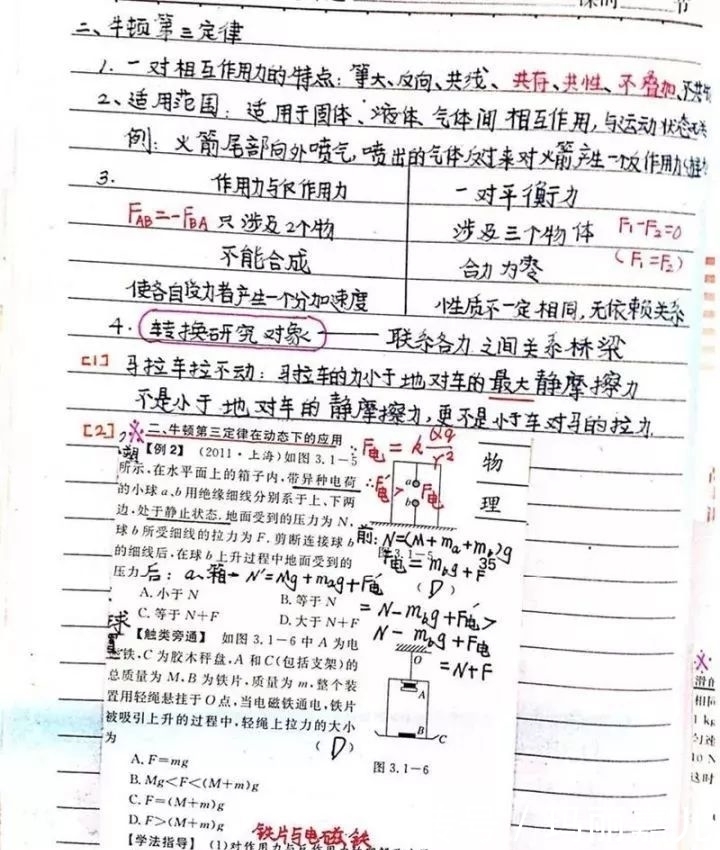 课时 节
二、牛顿第三定律
1. 一对相互作用力的特点：等大、反向、共线、共存、共性、不叠加、
2、适用范围：适用于固体、液体、气体间相互作用，与运动状态无关
例：火箭尾部向外喷气，喷出的气体反过来对火箭产生一个反作用力
3. 作用力与反作用力 一对平衡力
FAB=-FBA 只涉及2个物 涉及三个物体 F₁-F₂=0
不能合成 合力为零 (F₁=F₂)
使各自受力者产生一个分加速度 小性质不一定相同，无依赖关系
4. 转换研究对象 —— 联系各力之间关系桥梁
[1] 马拉车拉不动：马拉车的力小于地对车的最大静摩擦力
不是小于地对车的静摩擦力，更不是小于车对马的拉力
[2] 二、牛顿第三定律在动态下的应用
F电=k Qq/r²
∴F电'>F电
物理
【例2】 (2011·上海)如图3.1-5
所示,在水平面上的箱子内,带异种电荷
的小球a、b用绝缘细线分别系于上、下两
边,处于静止状态.地面受到的压力为N,
球b所受细线的拉力为F.剪断连接球b
的细线后,在球b上升过程中地面受到的
压力 (D)
a
b
图3.1-5
前：N=(M+ma+mb)g
F电=mbg+F
35
后：a、箱— N'=Mg+mag+F电'
=N-mbg+F电'>
N-mbg+F电
=N+F
A.小于N B.等于N
C.等于N+F D.大于N+F
球
【触类旁通】 如图3.1-6中A为电
铁,C为胶木秤盘,A和C(包括支架)的
总质量为M,B为铁片,质量为m,整个装
置用轻绳悬挂于O点,当电磁铁通电,铁片
被吸引上升的过程中,轻绳上拉力的大小
为 (D)
O
A
B
C
图3.1-6
A.F=mg
B.Mg<F<(M+m)g
C.F=(M+m)g
D.F>(M+m)g
铁片与电磁铁
【学法指导】 (1)对作用力与反作用力
1 kg
10 N
这时